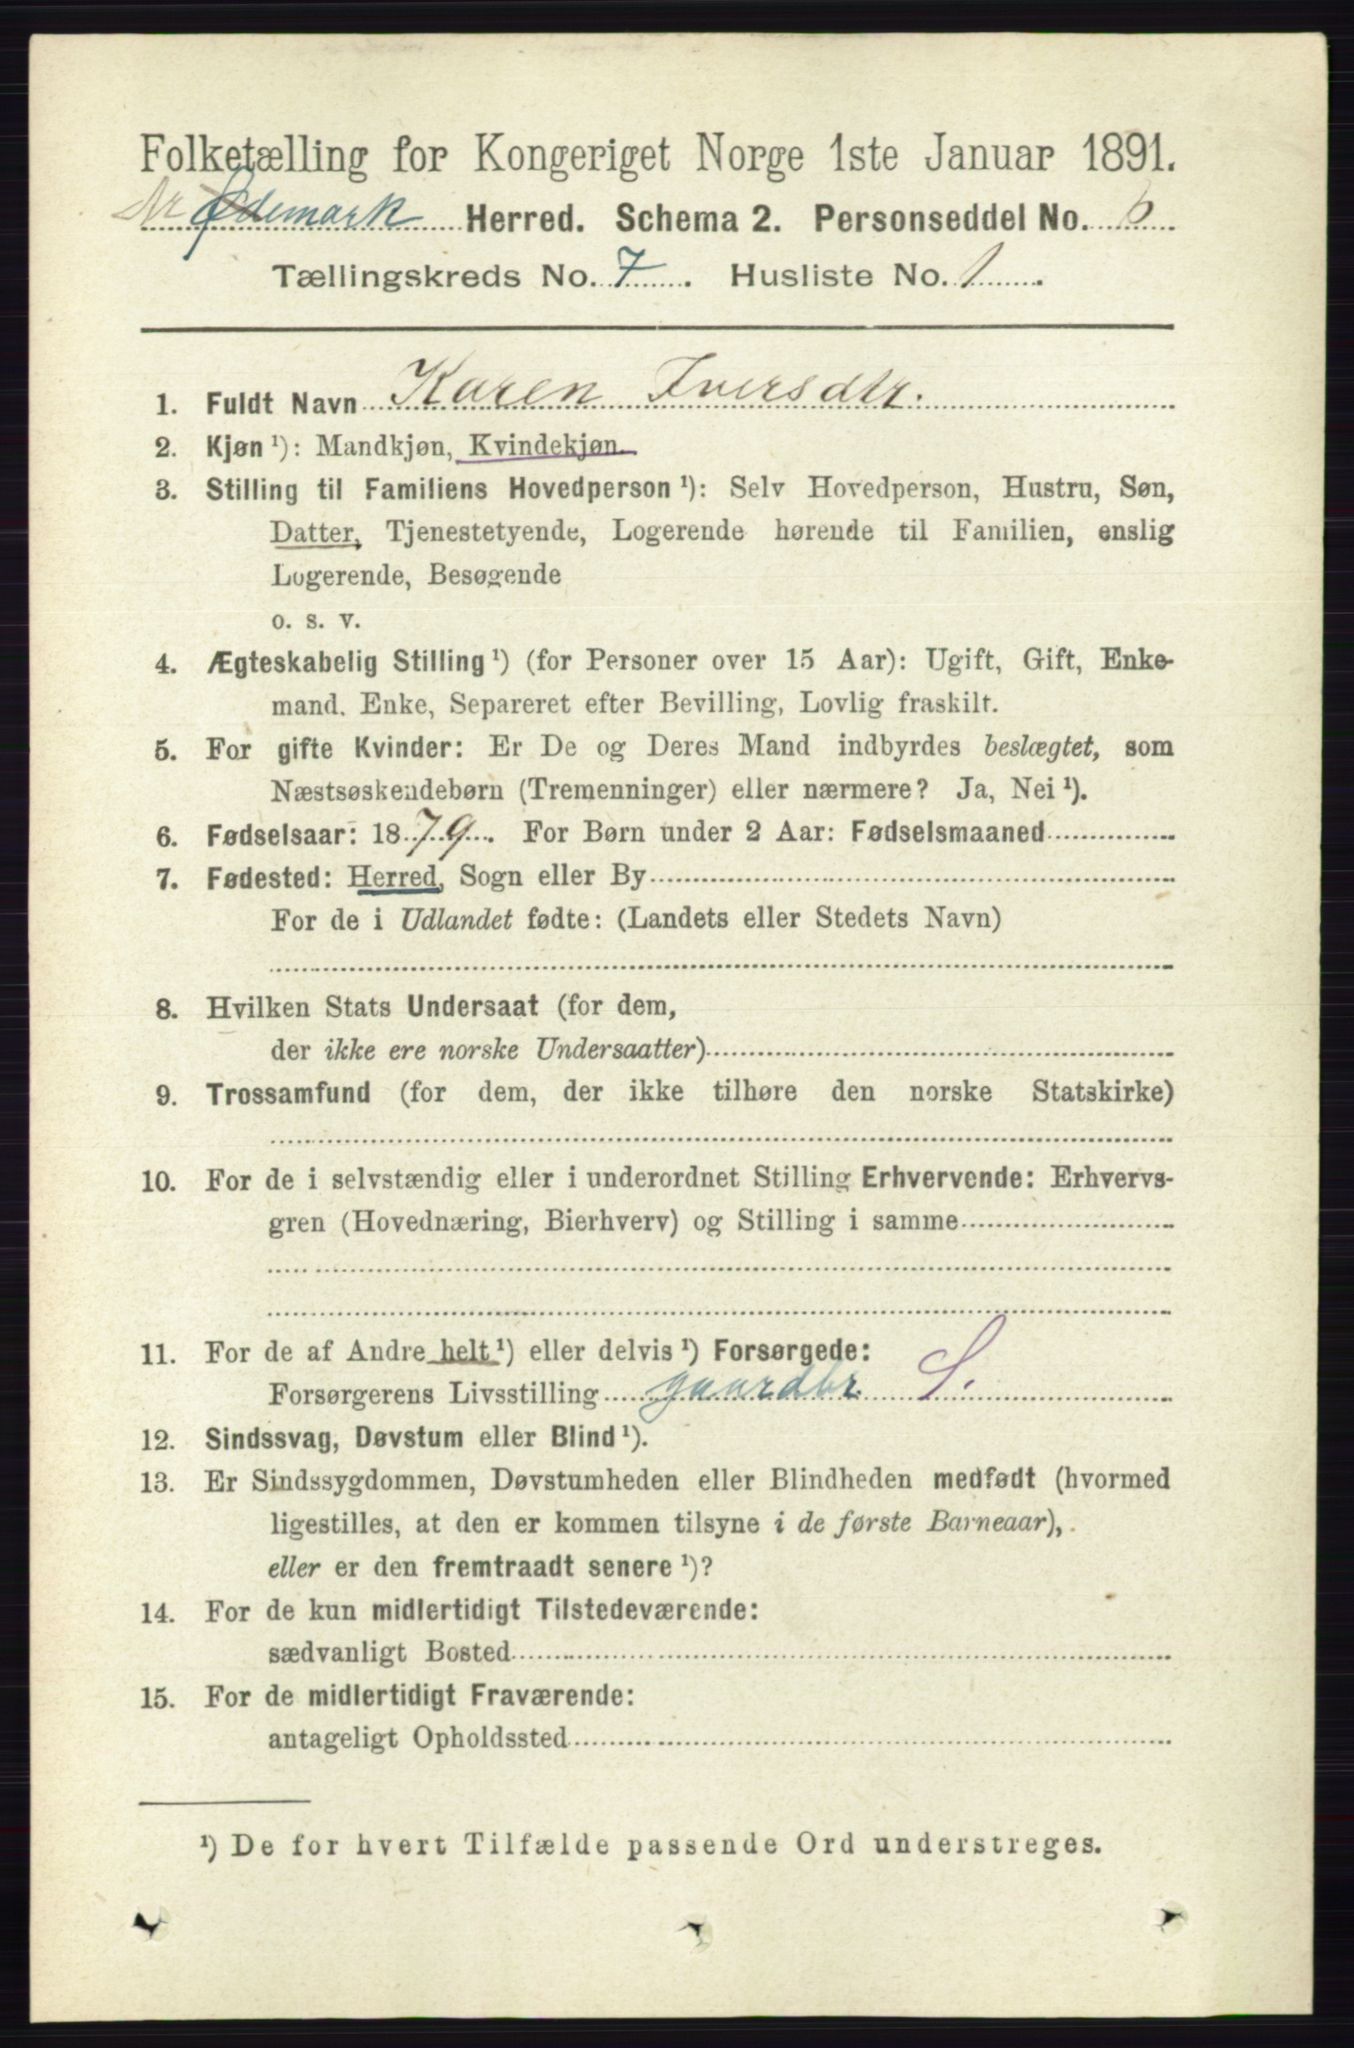 Folketælling for Kongeriget Norge 1ste Januar 1891.
Ødemark Herred. Schema 2. Personseddel No. 6
Tællingskreds No. 7. Husliste No. 1.
1. Fuldt Navn Karen Iversdtr.
2. Kjøn ¹): Mandkjøn, Kvindekjøn.
3. Stilling til Familiens Hovedperson ¹): Selv Hovedperson, Hustru, Søn,
Datter, Tjenestetyende, Logerende hørende til Familien, enslig
Logerende, Besøgende
o. s. v.
4. Ægteskabelig Stilling ¹) (for Personer over 15 Aar): Ugift, Gift, Enke-
mand. Enke, Separeret efter Bevilling, Lovlig fraskilt.
5. For gifte Kvinder: Er De og Deres Mand indbyrdes beslægtet, som
Næstsøskendebørn (Tremenninger) eller nærmere? Ja, Nei ¹).
6. Fødselsaar: 1879. For Børn under 2 Aar: Fødselsmaaned
7. Fødested: Herred, Sogn eller By
For de i Udlandet fødte: (Landets eller Stedets Navn)
8. Hvilken Stats Undersaat (for dem,
der ikke ere norske Undersaatter)
9. Trossamfund (for dem, der ikke tilhøre den norske Statskirke)
10. For de i selvstændig eller i underordnet Stilling Erhvervende: Erhvervs-
gren (Hovednæring, Bierhverv) og Stilling i samme
11. For de af Andre helt ¹) eller delvis ¹) Forsørgede:
Forsørgerens Livsstilling gaardbr. S.
12. Sindssvag, Døvstum eller Blind ¹).
13. Er Sindssygdommen, Døvstumheden eller Blindheden medfødt (hvormed
ligestilles, at den er kommen tilsyne i de første Barneaar),
eller er den fremtraadt senere ¹)?
14. For de kun midlertidigt Tilstedeværende:
sædvanligt Bosted
15. For de midlertidigt Fraværende:
antageligt Opholdssted
¹) De for hvert Tilfælde passende Ord understreges.